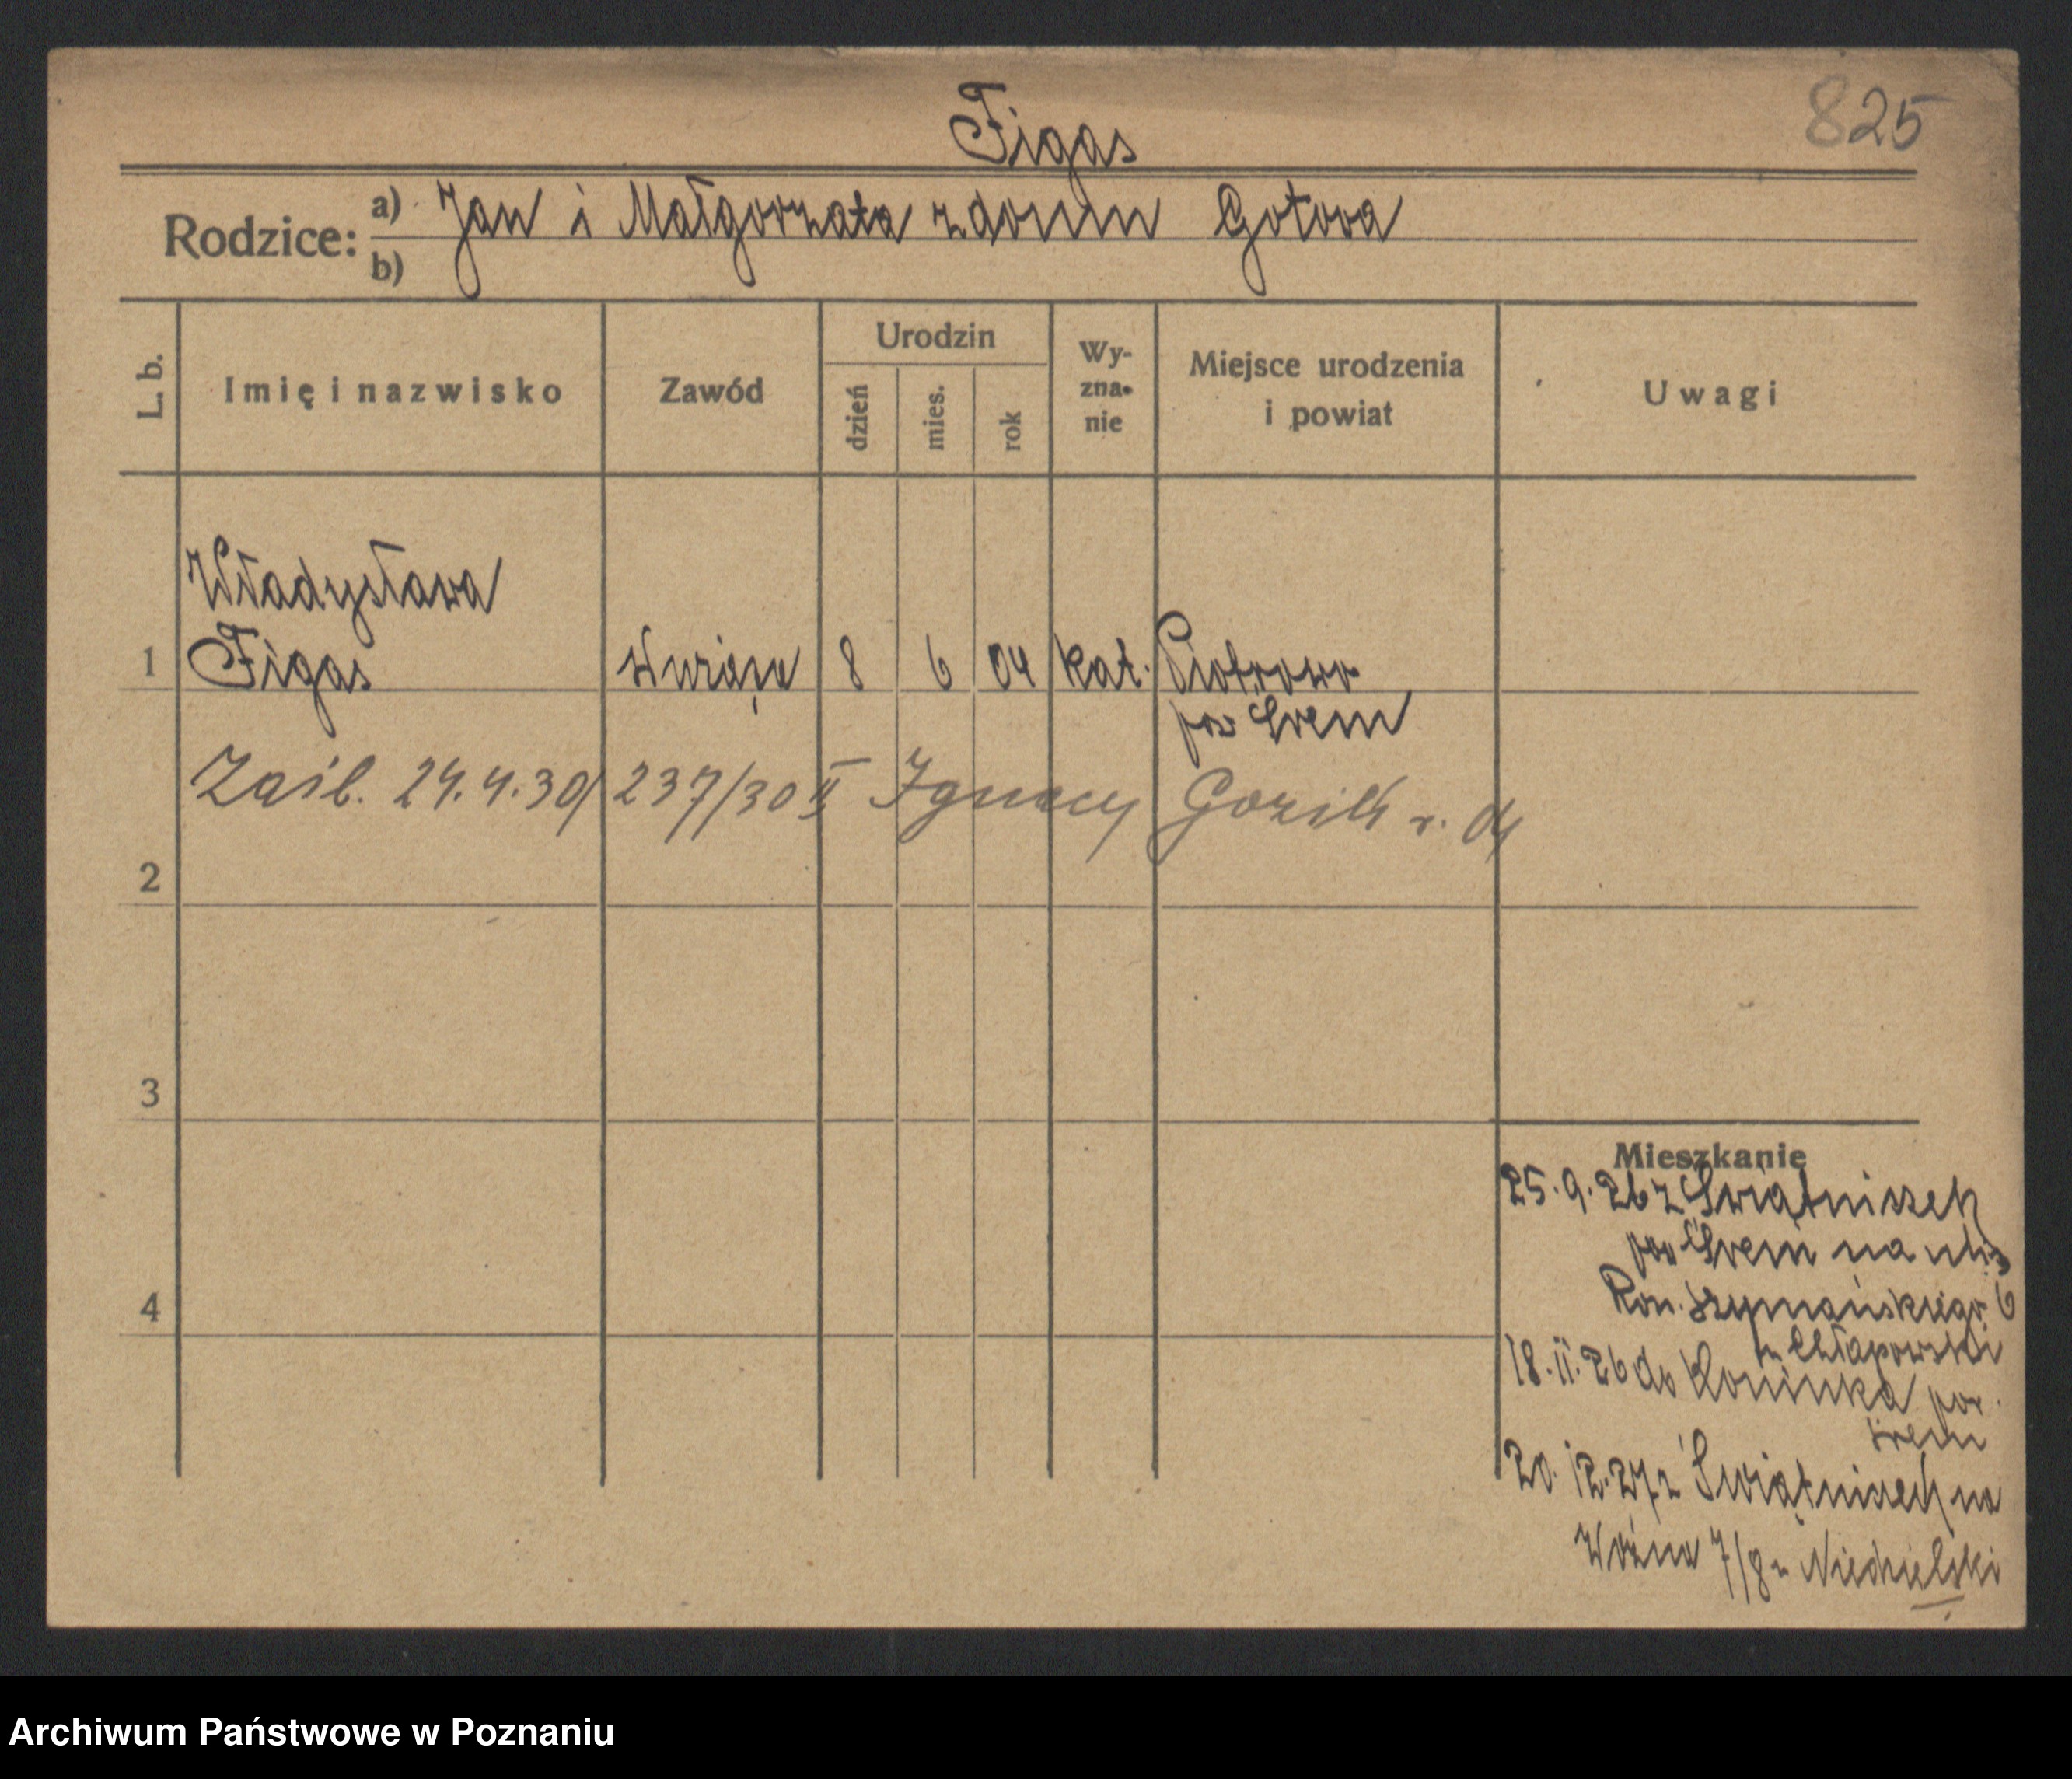 Figas
825
Rodzice: a) Jan i Małgorzata z domu Gotowa
b)
L. b.
Imię i nazwisko
Zawód
Urodzin
dzień
mies.
rok
Wy-
zna-
nie
Miejsce urodzenia
i powiat
Uwagi
Władysława
1 Figas służąca 8 6 04 kat. Piotrowo
pow Śrem
Zaśl. 24.4.30 237/30 II Ignacy Gozik r. 04
2
3
4
Mieszkanie
25.9.26 z Świątniszek
pow Śrem na ulic
Kon. Szymańskiego 6
u Chłapowski
18.11.26 do Koninka pow.
Śrem
20.12.27 z Świątniszek na
Woźna 7/8 u Niedzielski
Archiwum Państwowe w Poznaniu